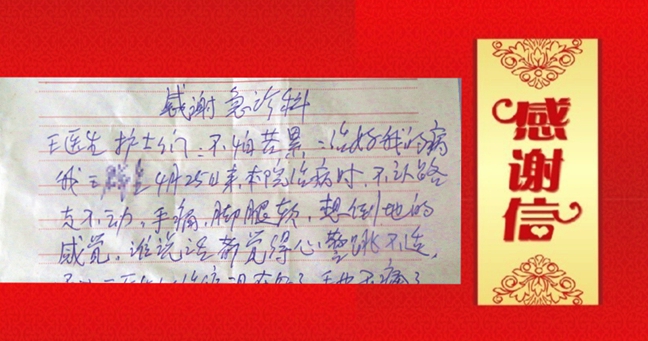 感谢急诊科
王医生护士们：不怕苦累，治好我的病
我王 4月25日来本院治病时，不认路
走不动，手痛，脚腿软，想倒地的
感觉，谁说话都觉得心 跳不连，
手也不痛了
感谢信